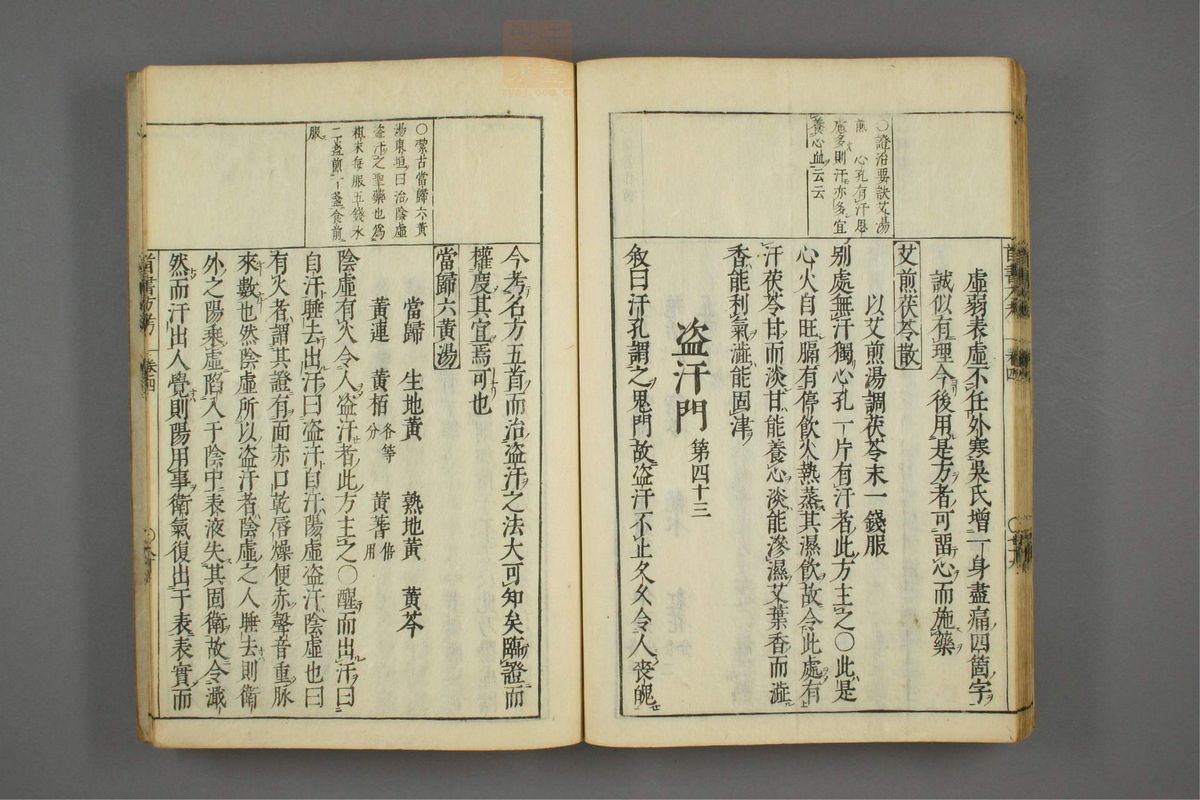 ○證治要訣艾湯
煎　心孔有汗思
慮多則汗亦多宜
養心血云云
虛弱表虛不任外寒吳氏增一身盡痛四箇字
誠似有理今後用是方者可留心而施藥
艾煎茯苓散
以艾煎湯調茯苓末一錢服
別處無汗獨心孔一片有汗者此方主之○此是
心火自旺膈有停飲火熱蒸其濕飲故令此處有
汗茯苓甘而淡甘能養心淡能滲濕艾葉香而澁
香能利氣澁能固津
盗汗門 第四十三
叙曰汗孔謂之鬼門故盗汗不止久久令人喪魄
○蒙古當歸六黃
湯東垣曰治陰虛
盗汗之聖藥也爲
粗末每服五錢水
二盞煎一盞食前
服
今考名方五首而治盗汗之法大可知矣臨證而
權度其宜焉可也
當歸六黃湯
當歸　生地黃　熟地黃　黃芩
黃連　黃栢各等分　黃蓍倍用
陰虛有火令人盗汗者此方主之○醒而出汗曰
自汗睡去出汗曰盗汗自汗陽虛盗汗陰虛也曰
有火者謂其證有面赤口乾唇燥便赤聲音重脉
來數也然陰虛所以盗汗者陰虛之人睡去則衛
外之陽乘虛陷入于陰中表液失其固衛故令濈
然而汗出人覺則陽用事衛氣復出于表表實而
首書方考　卷四